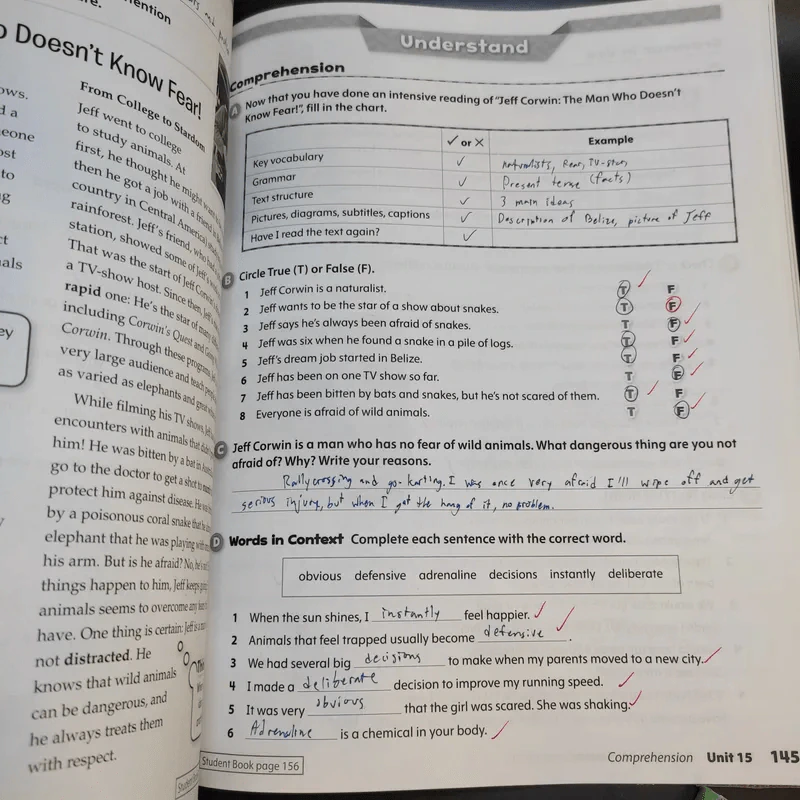 ention
o Doesn't Know Fear!
From College to Stardom
Jeff went to college
to study animals. At
first, he thought he might
then he got a job with a friend
country in Central America)
rainforest. Jeff's friend, who
station, showed some of Jeff's
That was the start of Jeff Corwin
a TV-show host. Since then, Jeff's
rapid one: He's the star of many
including Corwin's Quest and Going
Corwin. Through these programs,
very large audience and teach people
as varied as elephants and great
While filming his TV shows, Jeff
encounters with animals that
him! He was bitten by a bat in
go to the doctor to get a shot to
protect him against disease. He was
by a poisonous coral snake that he
elephant that he was playing with
his arm. But is he afraid? No, he's
things happen to him, Jeff keeps
animals seems to overcome any
have. One thing is certain: Jeff is
not distracted. He
knows that wild animals
can be dangerous, and
he always treats them
with respect.
ows.
d a
eone
ost
to
ng
ct
als
ey
Understand
Comprehension
A Now that you have done an intensive reading of "Jeff Corwin: The Man Who Doesn't
Know Fear!", fill in the chart.
✓ or ✗ Example
Key vocabulary ✓ naturalists, Rear, TV-star,
Grammar ✓ Present tense (facts)
Text structure ✓ 3 main ideas
Pictures, diagrams, subtitles, captions ✓ Description of Belize, picture of Jeff
Have I read the text again? ✓
B Circle True (T) or False (F).
1 Jeff Corwin is a naturalist. T F
2 Jeff wants to be the star of a show about snakes. T F
3 Jeff says he's always been afraid of snakes. T F
4 Jeff was six when he found a snake in a pile of logs. T F
5 Jeff's dream job started in Belize. T F
6 Jeff has been on one TV show so far. T F
7 Jeff has been bitten by bats and snakes, but he's not scared of them. T F
8 Everyone is afraid of wild animals. T F
C Jeff Corwin is a man who has no fear of wild animals. What dangerous thing are you not
afraid of? Why? Write your reasons.
Rallycrossing and go-karting. I was once very afraid I'll wipe off and get
serious injury, but when I got the hang of it, no problem.
D Words in Context Complete each sentence with the correct word.
obvious defensive adrenaline decisions instantly deliberate
1 When the sun shines, I instantly feel happier.
2 Animals that feel trapped usually become defensive.
3 We had several big decisions to make when my parents moved to a new city.
4 I made a deliberate decision to improve my running speed.
5 It was very obvious that the girl was scared. She was shaking.
6 Adrenaline is a chemical in your body.
Student Book page 156
Comprehension Unit 15 145